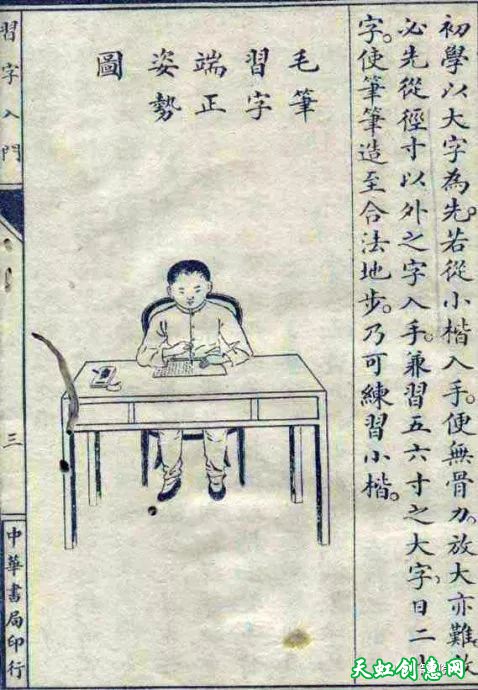 初學以大字為先。若從小楷入手。便無骨力。放大亦難。故
必先從徑寸以外之字入手。兼習五六寸之大字。日二
字。使筆筆造至合法地步。乃可練習小楷。
毛筆
習字
端正
姿勢
圖
習字入門
三
中華書局印行
天虹创意网